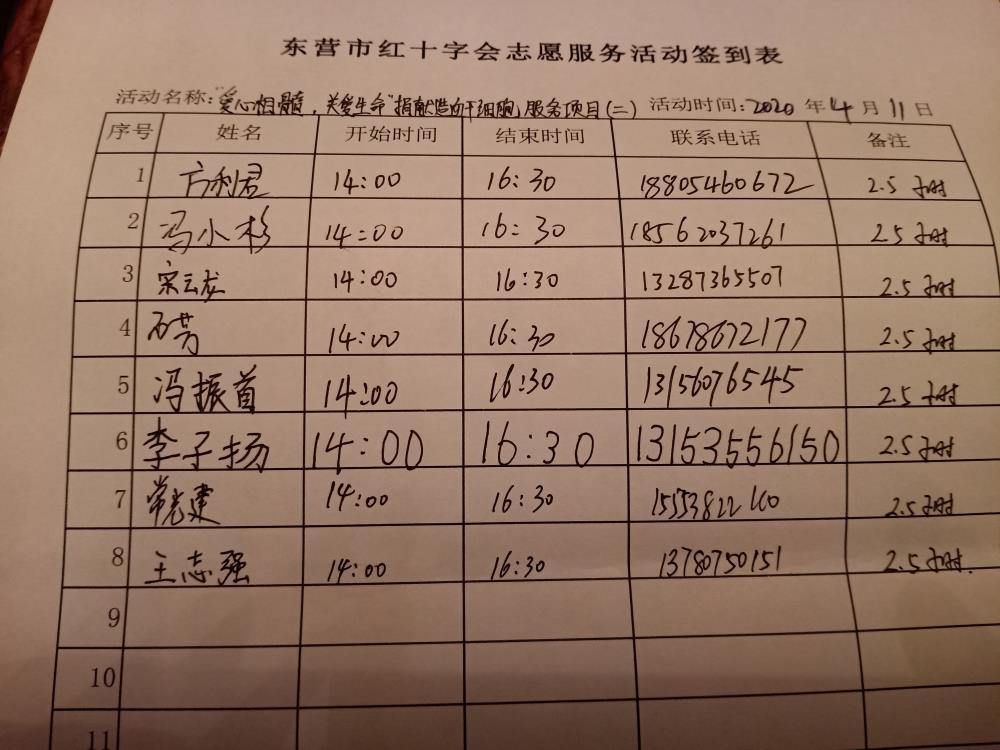 东营市红十字会志愿服务活动签到表
活动名称:“爱心相髓,关爱生命”捐献造血干细胞服务项目(二) 活动时间:2020年4月11日
序号 姓名 开始时间 结束时间 联系电话 备注
1 方利君 14:00 16:30 18805460672 2.5小时
2 冯小杉 14:00 16:30 18562037261 2.5小时
3 宋云龙 14:00 16:30 13287365507 2.5小时
4 石芳 14:00 16:30 18678672177 2.5小时
5 冯振首 14:00 16:30 13156076545 2.5小时
6 李子扬 14:00 16:30 13153556150 2.5小时
7 常光建 14:00 16:30 2.5小时
8 王志强 14:00 16:30 13780750151 2.5小时.
9
10
11